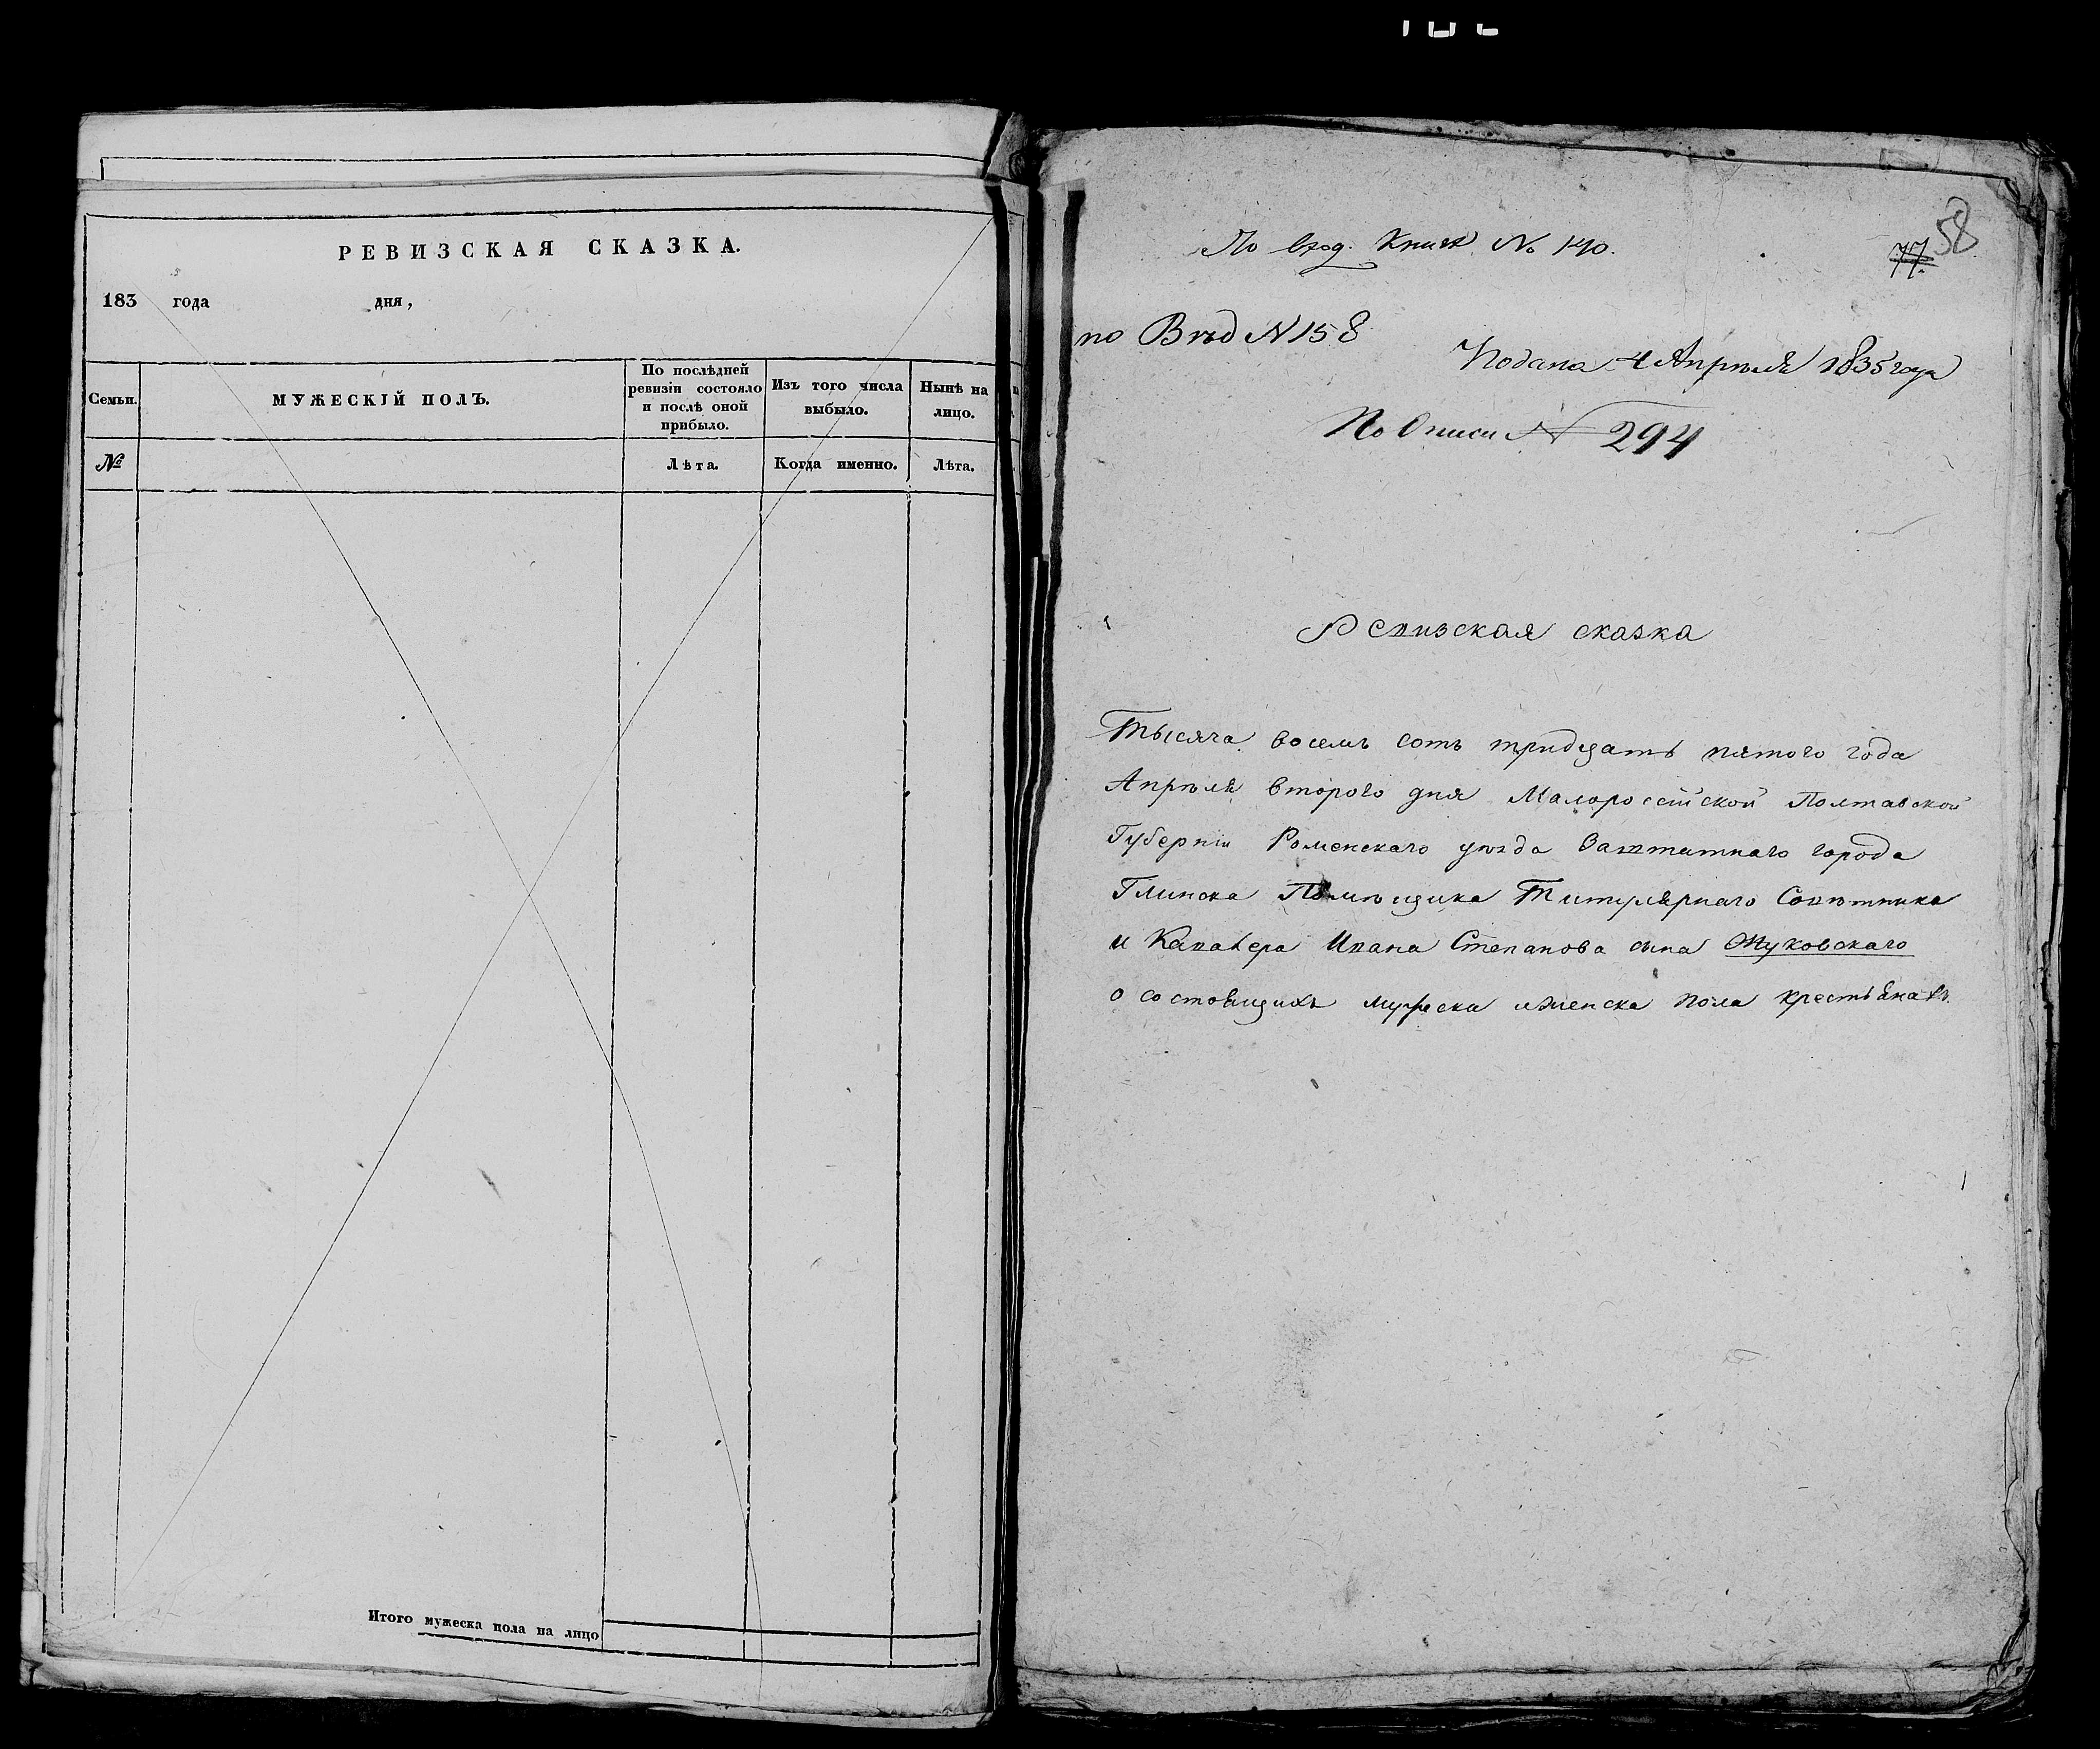 РЕВИЗСКАЯ СКАЗКА.
183 года дня,
Семьи.
МУЖЕСКІЙ ПОЛЪ.
По послѣдней
ревизіи состояло
и послѣ оной
прибыло.
Изъ того числа
выбыло.
Нынѣ на
лицо.
№
Лѣта.
Когда именно.
Лѣта.
Итого мужеска пола на лицо
По вход. Книгѣ № 140.
77.
58
по Вѣд N 158
Подана 4 Апрѣля 1835 года
По Описи N 294
Ревизская сказка
Тысяча восемъ сотъ тридцать пятого года
Апрѣля второго дня Малоросс��йской Полтавской
Губерніи Роменскаго уѣзда Заштатнаго города
Глинска Помѣщика Титулярнаго Совѣтника
и Кавалера Ивана Степанова сына Жуковскаго
о состоящихъ мужеска и женска пола крестьянахъ.